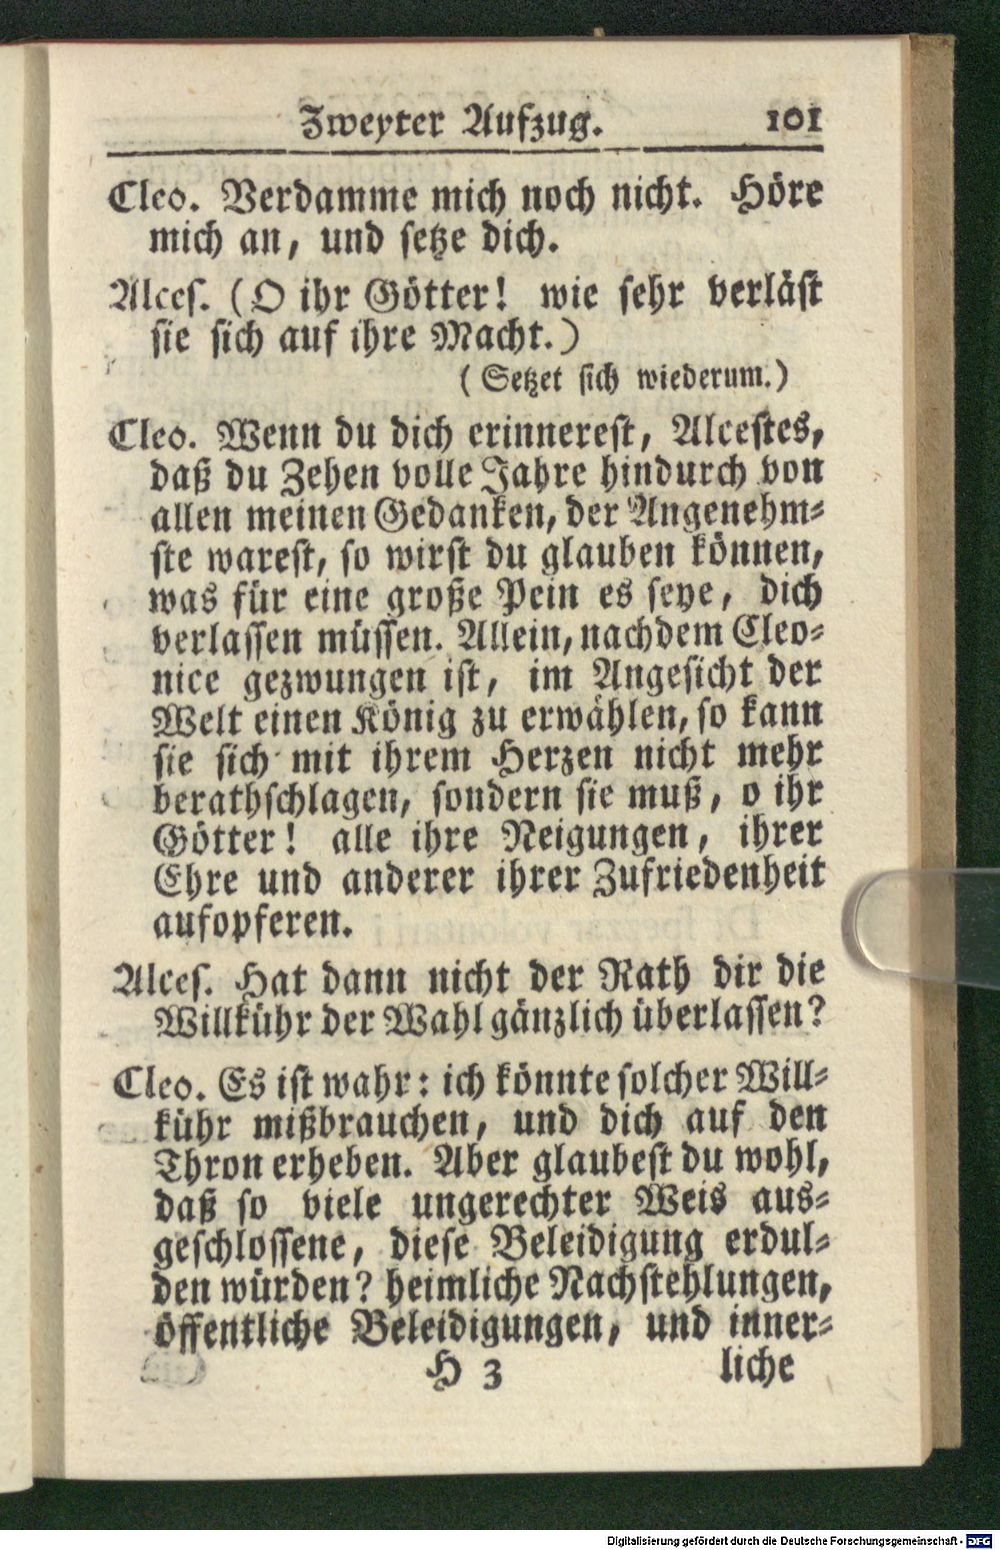 Zweyter Aufzug. 101
Cleo. Verdamme mich noch nicht. Höre
mich an, und setze dich.
Alces. (O ihr Götter! wie sehr verläst
sie sich auf ihre Macht.)
(Setzet sich wiederum.)
Cleo. Wenn du dich erinnerest, Alcestes,
daß du Zehen volle Jahre hindurch von
allen meinen Gedanken, der Angenehm-
ste warest, so wirst du glauben können,
was für eine große Pein es seye, dich
verlassen müssen. Allein, nachdem Cleo-
nice gezwungen ist, im Angesicht der
Welt einen König zu erwählen, so kann
sie sich mit ihrem Herzen nicht mehr
berathschlagen, sondern sie muß, o ihr
Götter! alle ihre Neigungen, ihrer
Ehre und anderer ihrer Zufriedenheit
aufopferen.
Alces. Hat dann nicht der Rath dir die
Willkühr der Wahl gänzlich überlassen?
Cleo. Es ist wahr: ich könnte solcher Will-
kühr mißbrauchen, und dich auf den
Thron erheben. Aber glaubest du wohl,
daß so viele ungerechter Weis aus-
geschlossene, diese Beleidigung erdul-
den würden? heimliche Nachstehlungen,
öffentliche Beleidigungen, und inner-
H 3 liche
Digitalisierung gefördert durch die Deutsche Forschungsgemeinschaft - DFG